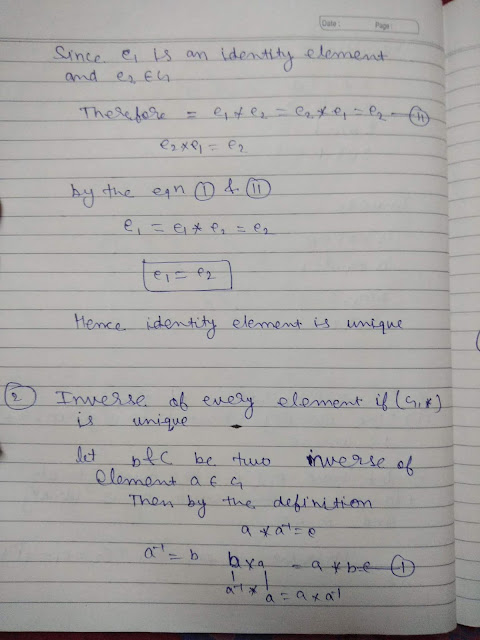 Date : Page :
Since e₁ is an identity element
and e₂ ∈ G
Therefore = e₁ * e₂ = e₂ * e₁ = e₂ - (II)
e₂ * e₁ = e₂
by the eqn (I) & (II)
e₁ = e₁ * e₂ = e₂
e₁ = e₂
Hence identity element is unique
(2) Inverse of every element if (G,*)
is unique
let b & C be two inverse of
element a ∈ G
Then by the definition
a * a⁻¹ = e
a⁻¹ = b b * a = a * b = e (I)
a⁻¹ * a = a * a⁻¹